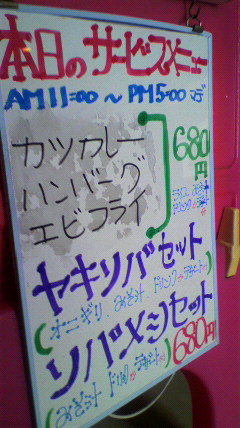 本日のサービスメニュー
AM11:00〜PM5:00マデ
カツカレー
ハンバーグ
エビフライ
680円
ヤキソバセット
(オニギリ、みそ汁、ドリンク、デザート)
ソバメシセット
(みそ汁 ドリンク デザート)
680円